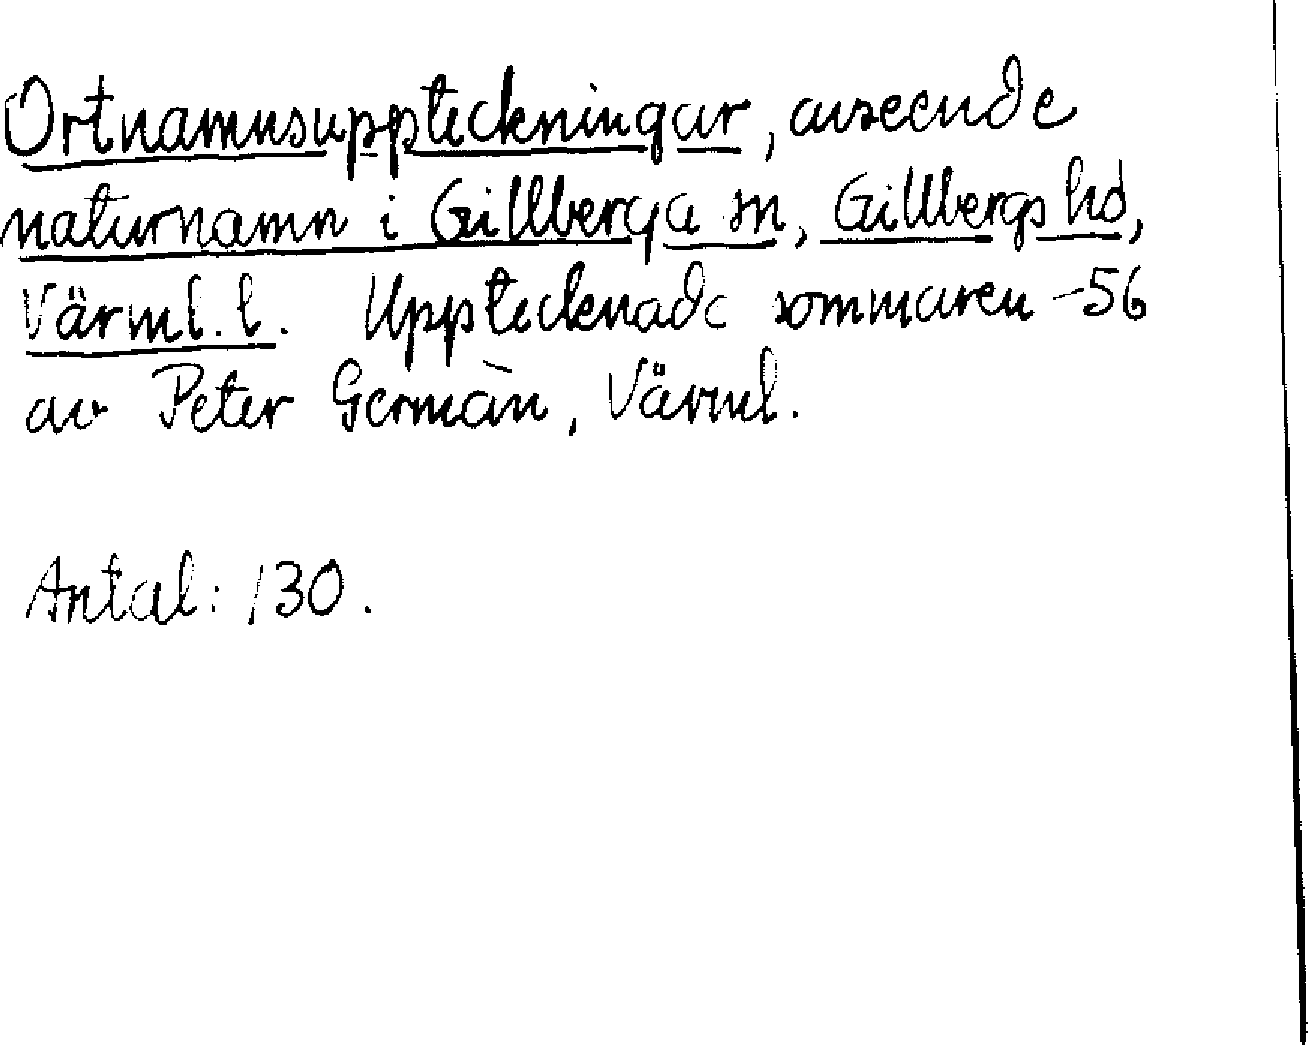 Ortnamnsuppteckningar, avseende
naturnamn i Gillberga sn, Gillbergs hd,
Värml. l. Upptecknade sommaren -56
av Peter Germàn, Värml.
Antal: 130.